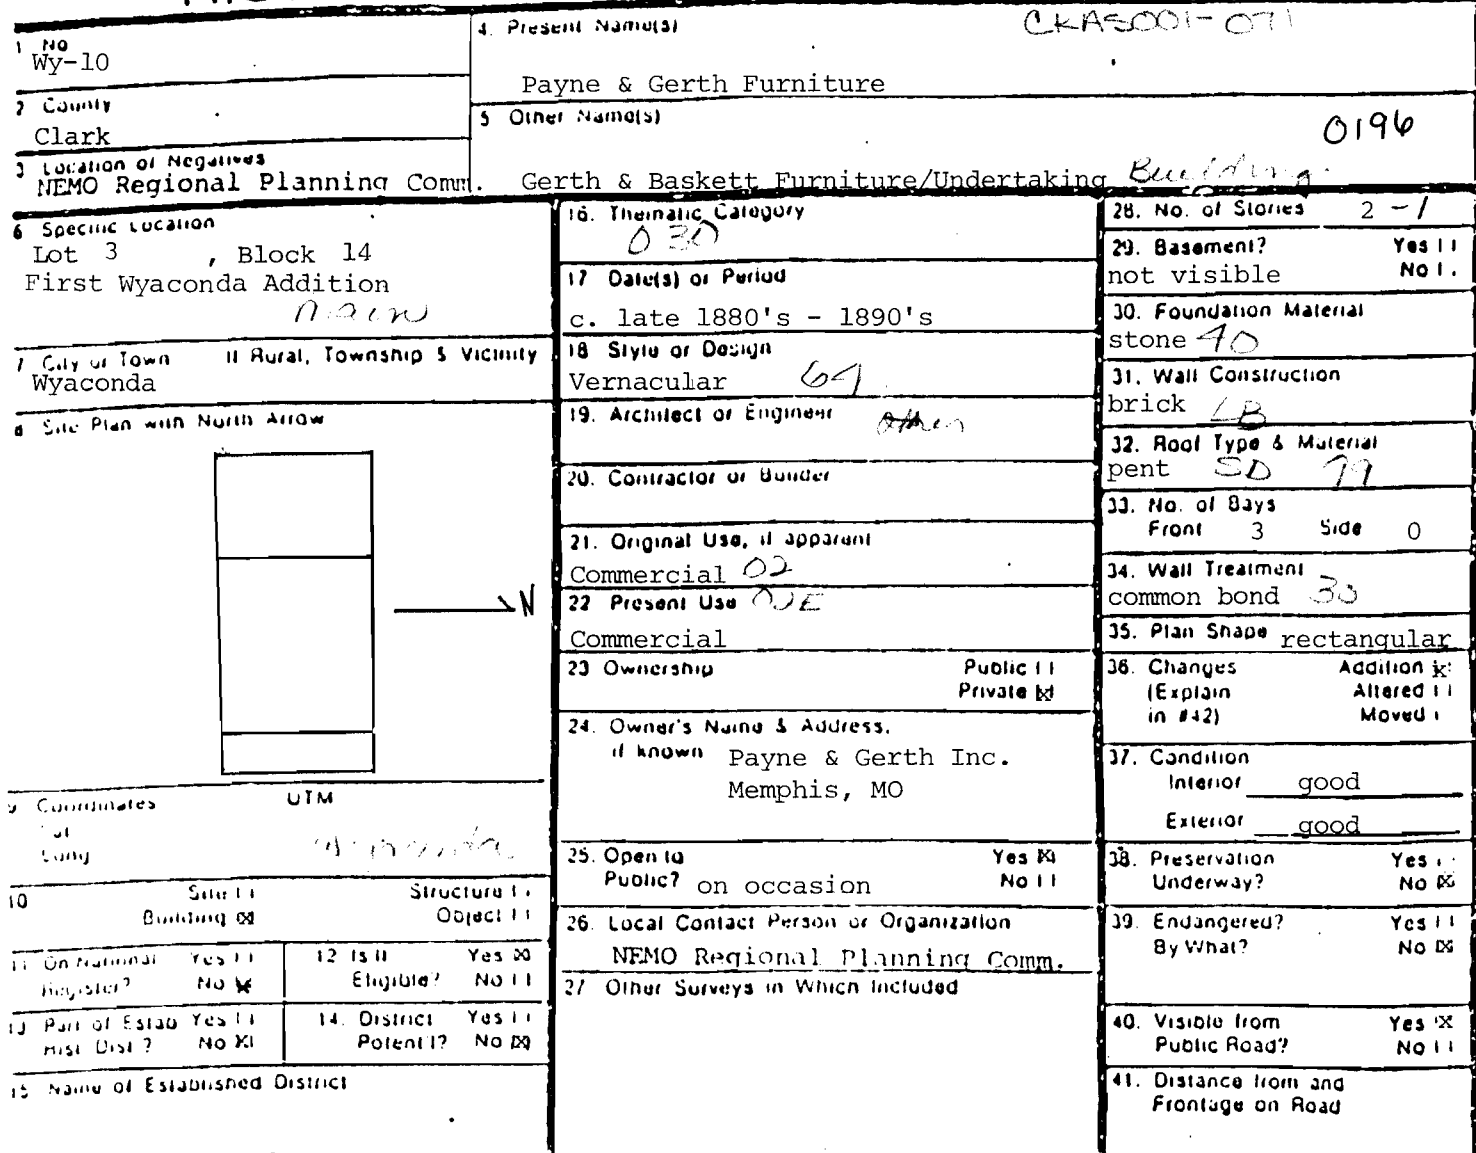 CKAS001-071
1 No
Wy-10
4. Present Name(s)
Payne & Gerth Furniture
2 County
Clark
5 Other Name(s)
0196
3 Location of Negatives
NEMO Regional Planning Comm.
Gerth & Baskett Furniture/Undertaking Building
6 Specific Location
Lot 3 , Block 14
First Wyaconda Addition
Main
7 City or Town If Rural, Township & Vicinity
Wyaconda
8 Site Plan with North Arrow
N
9 Coordinates UTM
Lat
Long
Wyaconda
10 Site Structure
Building Object
11 On National Yes
Register? No
12 Is It Yes
Eligible? No
13 Part of Estab Yes
Hist. Dist.? No
14. District Yes
Potent'l? No
15 Name of Established District
16. Thematic Category
030
17 Date(s) or Period
c. late 1880's - 1890's
18 Style or Design
Vernacular 64
19. Architect or Engineer
other
20. Contractor or Builder
21. Original Use, if apparent
Commercial 02
22 Present Use 02E
Commercial
23 Ownership Public
Private
24. Owner's Name & Address,
if known Payne & Gerth Inc.
Memphis, MO
25. Open to Yes
Public? on occasion No
26. Local Contact Person or Organization
NEMO Regional Planning Comm.
27 Other Surveys in Which Included
28. No. of Stories 2 -1
29. Basement? Yes
not visible No
30. Foundation Material
stone 40
31. Wall Construction
brick LB
32. Roof Type & Material
pent SD 99
33. No. of Bays
Front 3 Side 0
34. Wall Treatment
common bond 30
35. Plan Shape rectangular
36. Changes Addition
(Explain Altered
in #42) Moved
37. Condition
Interior good
Exterior good
38. Preservation Yes
Underway? No
39. Endangered? Yes
By What? No
40. Visible from Yes
Public Road? No
41. Distance from and
Frontage on Road